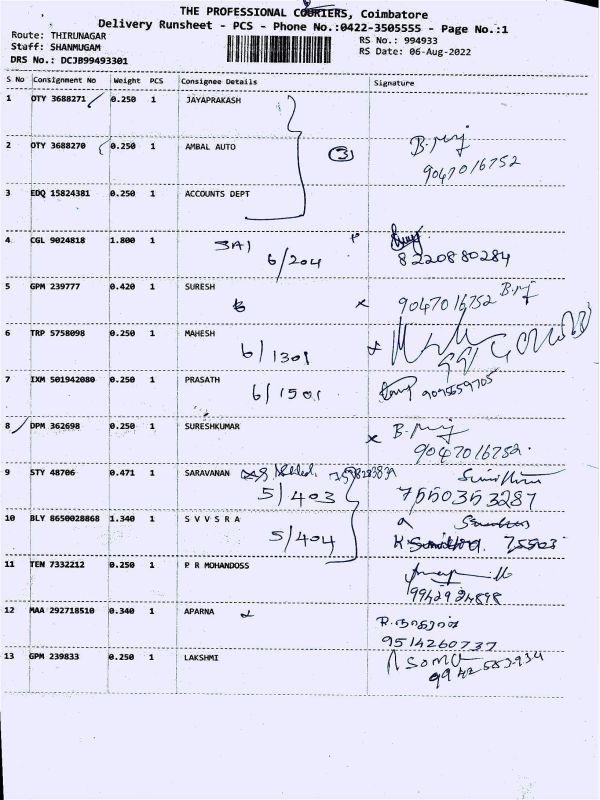 THE PROFESSIONAL COURIERS, Coimbatore
Delivery Runsheet - PCS - Phone No.:0422-3505555 - Page No.:1
Route: THIRUNAGAR RS No.: 994933
Staff: SHANMUGAM RS Date: 06-Aug-2022
DRS No.: DCJB99493301
S No Consignment No Weight PCS Consignee Details Signature
1 OTY 3688271 0.250 1 JAYAPRAKASH
2 OTY 3688270 0.250 1 AMBAL AUTO 3 9047016752
3 EDQ 15824381 0.250 1 ACCOUNTS DEPT
4 CGL 9024818 1.800 1 SAI
6/204 8220880284
5 GPM 239777 0.420 1 SURESH
6 x 9047016752
6 TRP 5758098 0.250 1 MAHESH
6/1301
7 IXM 501942080 0.250 1 PRASATH
6/1501 9095659705
8 DPM 362698 0.250 1 SURESHKUMAR
x 9047016752
9 STY 48706 0.471 1 SARAVANAN
5/403 7550353287
10 BLY 8650028868 1.340 1 S V V S R A
5/404
11 TEN 7332212 0.250 1 P R MOHANDOSS
9942924898
12 MAA 292718510 0.340 1 APARNA
9514260737
13 GPM 239833 0.250 1 LAKSHMI